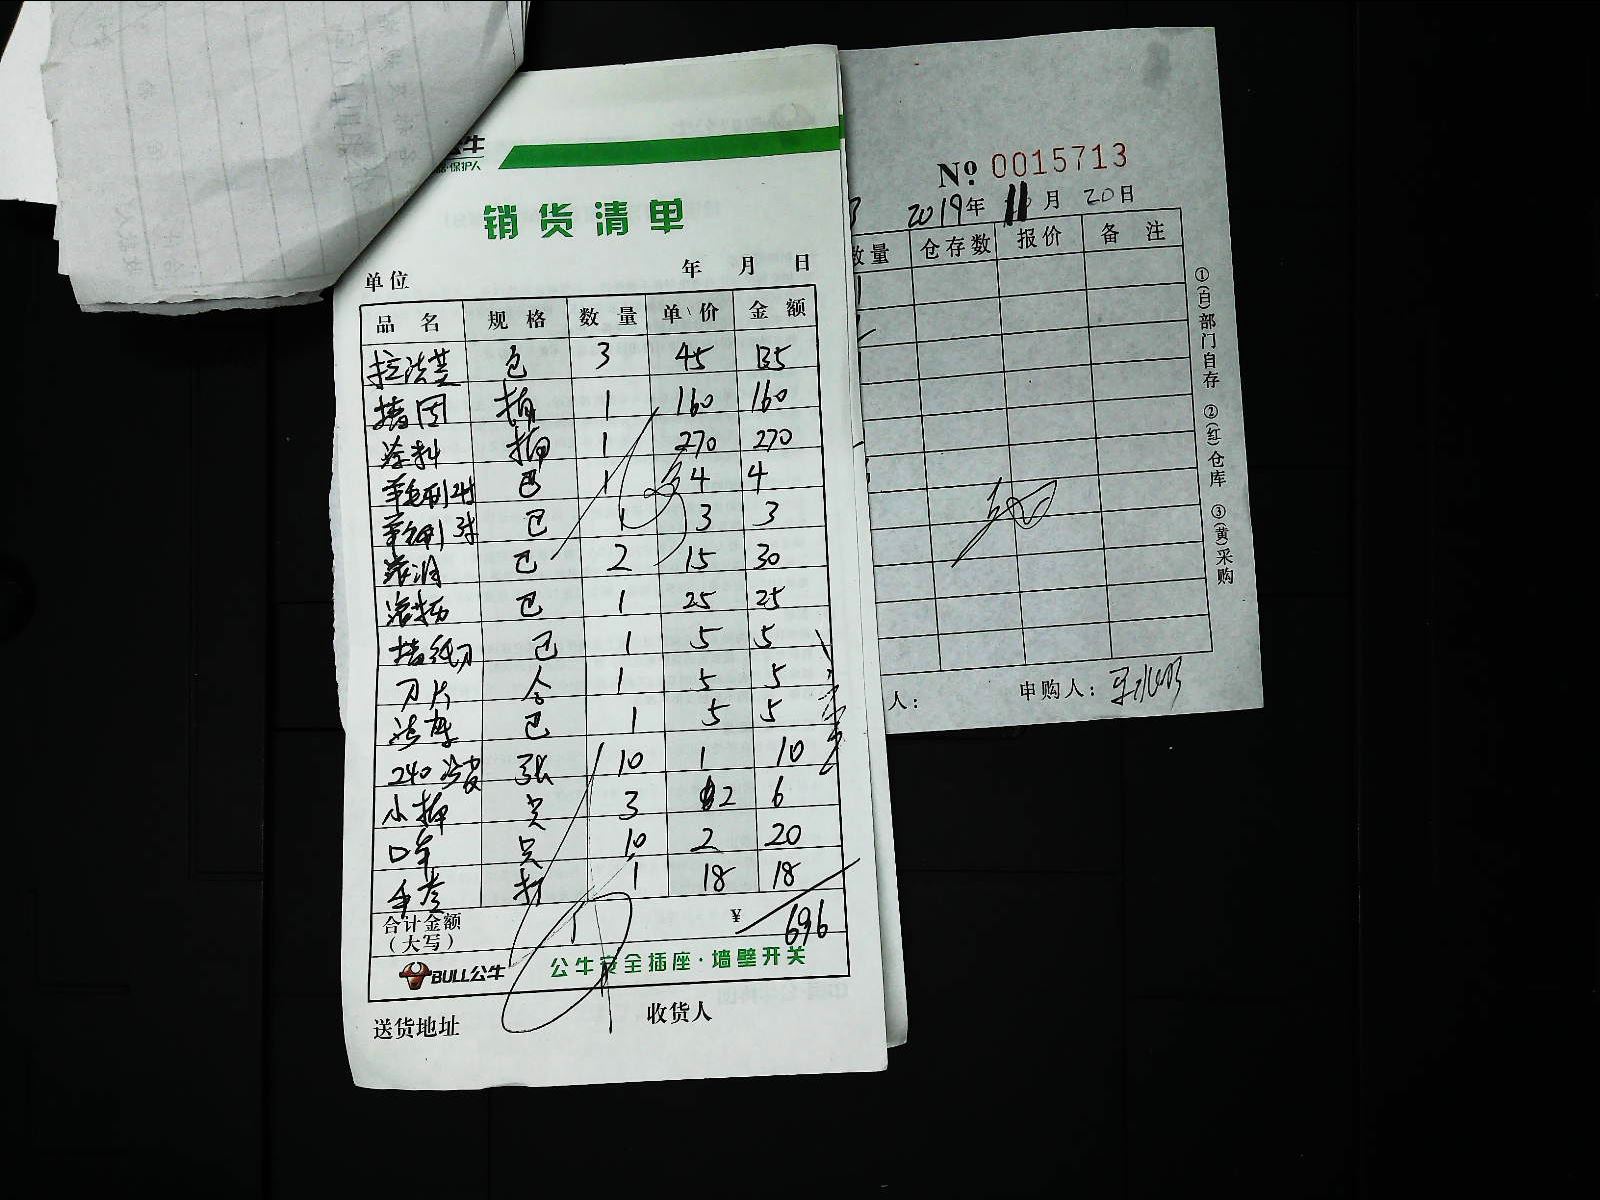 公牛
保护人
销货清单
单位 年 月 日
品名 规格 数量 单价 金额
拉法基 包 3 45 135
墙固 桶 1 160 160
涂料 桶 1 270 270
羊毛刷2寸 巴 1 4 4
3寸 巴 1 3 3
巴 2 15 30
巴 1 25 25
墙纸刀 巴 1 5 5
刀片 合 1 5 5
巴 1 5 5
240 砂皮 张 10 1 10
小桶 只 3 2 6
口羊 只 10 2 20
手套 打 1 18 18
合计金额
(大写) ¥ 696
BULL公牛 公牛安全插座·墙壁开关
送货地址 收货人
№ 0015713
2019年 11月 20日
数量 仓存数 报价 备注
①(白)部门自存 ②(红)仓库 ③(黄)采购
人: 申购人: